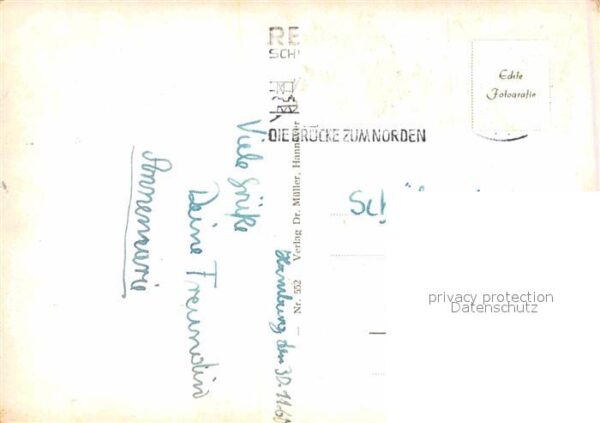 RE
SCH
DIE BRÜCKE ZUM NORDEN
Echte
Fotografie
Hamburg den 30.11.60
Viele Grüße
Deine Freundin
Annemarie
— Nr. 552 Verlag Dr. Müller, Hannover
Sch
privacy protection
Datenschutz